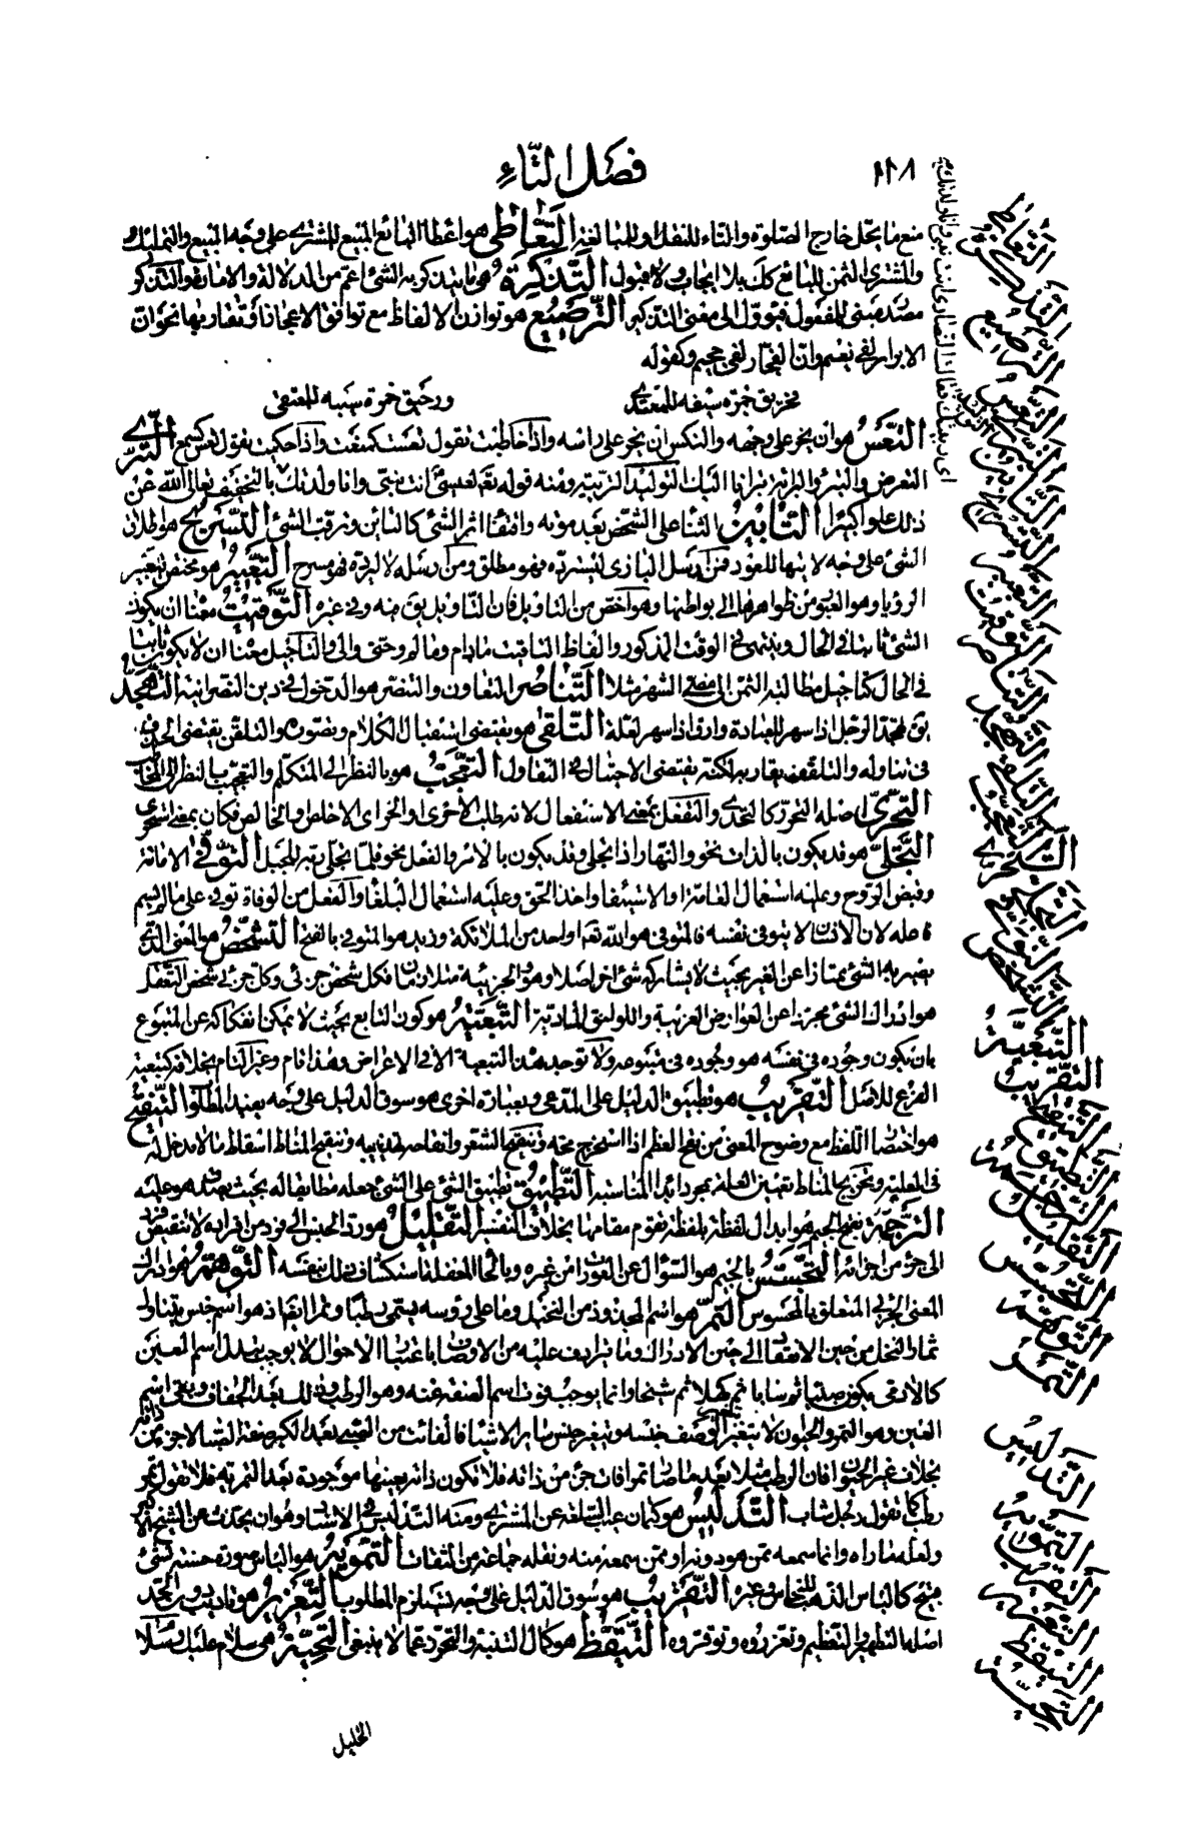 ١١٨
فصل التاء
منع ما يحل خارج الصلوة والتاء للنقل او للمبالغة التعاطى هو اعطاء البائع المبيع للمشترى على وجه المبيع والتمليك
والمشترى الثمن للبائع كذلك بلا ايجاب ولا قبول التذكرة هى ما يتذكر به الشئ اعم من الدلالة والامارة والتذكر
مصدر مبنى للمفعول فيؤول الى معنى التذكير الترصيع هو توازن الالفاظ مع توافق الاعجاز او تقاربها نحو ان
الابرار لفى نعيم وان الفجار لفى جحيم وكقوله
فحريق جمرة سيفه للمعتدى ورحيق خمرة سيبه للمعتفى
التعس هو ان يخر على وجهه والنكس ان يخر على راسه واذا خاطبت تقول تعست كمنعت واذا حكيت تقول تعس كسمع التبرى
التعرض والتبرؤ والبراءة
ذلك علوا كبيرا التأبين الثناء على الشخص بعد موته واقتفاء اثر الشئ كالتابن وترقب الشئ التسريح هو اطلاق
الشئ على وجه لا يتهيأ للعود فمن ارسل البازى ليسترده فهو مطلق ومن ارسله لا ليرده فهو مسرح التعبير هو مختص بتعبير
الرؤيا وهو العبور من ظواهرها الى بواطنها وهو اخص من التاويل فان التاويل يق فيه وفى غيره التوقيت معناه ان يكون
الشئ ثابتا فى الحال وينتهى فى الوقت المذكور والفاظ التاقيت مادام ومالم وحتى والى والتأجيل معناه ان لا يكون ثابتا
فى الحال كتأجيل مطالبة الثمن الى مضى الشهر مثلا التناصر التعاون والتنصر هو الدخول فى دين النصرانية التهجد
يق تهجد الرجل اذا سهر للعبادة وارق اذا سهر لعلة التلقى هو يقتضى استقبال الكلام وتصوره والتلقن يقتضى الحذق
فى تناوله والتلقف يقاربه لكنه يقتضى الاحتيال فى التناول التعجب هو بالنظر الى المتكلم والتعجيب بالنظر الى المخاطب
التحرى اصله التحرر كالتحدى والتفعل بمعنى الاستفعال لانه طلب الاحرى او الحر اى الاخلص والخالص فكان بمعنى استحرى
التجلى هو قد يكون بالذات نحو والنهار اذا تجلى وقد يكون بالامر والفعل نحو فلما تجلى ربه للجبل التوفى الاماتة
وقبض الروح وعليه استعمال العامة او الاستيفاء واخذ الحق وعليه استعمال البلغاء والفعل من الوفاة توفى على مالم يسم
فاعله لان الانسان لا يتوفى نفسه فالمتوفى هو الله تعا او احد من الملائكة وزيد هو المتوفى بالفتح التشخص هو المعنى الذى
يصير به الشئ ممتازا عن الغير بحيث لا يشاركه شئ اخر اصلا وهو والجزئية متلازمان فكل شخص جزئى وكل جزئى شخص التعقل
هو ادراك الشئ مجردا عن العوارض الغريبة واللواحق المادية التبعية هو كون التابع بحيث لا يمكن انفكاكه عن المتبوع
بان يكون وجوده فى نفسه هو وجوده فى متبوعه ولا توجد هذه التبعية الا فى الاعراض وهذا تام وغير التام بخلافه كتبعية
الفرع للاصل التقريب هو تطبيق الدليل على المدعى وبعبارة اخرى هو سوق الدليل على وجه يفيد المطلوب التنقيح
هو اختصار اللفظ مع وضوح المعنى من نقح العظم اذا استخرج مخه وتنقيح الشعر وانقاحه تهذيبه وتنقيح المناط اسقاط ما لا مدخل له
فى العلية وتخريج المناط تعيين العلة بمجرد ابداء المناسبة التطبيق تطبيق الشئ على الشئ جعله مطابقا له بحيث يصدق هو عليه
الترجمة بفتح الجيم هو ابدال لفظة بلفظة تقوم مقامها بخلاف التفسير التقليل هو رد الجنس الى فرد من افراده لا تنقيص فرد
الى جزء من اجزائه التجسس بالجيم هو السؤال عن العورات من غيره وبالحاء المغفلة استكشاف ذلك بنفسه التوهم هو ادراك
المعنى الجزئى المتعلق بالمحسوس التمر هو اسم لمجذوذ من النخيل وما على رؤسه يسمى رطبا وتمرا ايضا اذ هو اسم جنس يتناول
ثمار النخل من حين الانعقاد الى حين الادراك وما ترادف عليه من الاوصاف باعتبار الاحوال لا يوجب تبدل اسم العين
كالادمى يكون صبيا ثم شابا ثم كهلا ثم شيخا وانما يوجب فوت اسم الصفة عنه وهو الرطب وذلك بعد الجفاف ويبقى اسم
العين وهو التمر والحيوان لا يتغير الوصف جنسه ويتغير جنس سائر الاشياء فالفائت من الصبى بعد الكبر صفة الصبا لا جزء من ذاته
بخلاف غير الحيوان فان الرطب مثلا بعد ما صار تمرا فات جزء من ذاته فلا تكون ذاته بعينها موجودة بعد التمرية فلا تقول تمر
رطب كما تقول رجل شاب التدليس هو كتمان عيب السلعة عن المشترى ومنه التدليس فى الاسناد وهو ان يحدث عن الشيخ الاكبر
ولعله ما راه وانما سمعه ممن هو دونه او ممن سمعه منه ونقله جماعة من الثقات التمويه هو الباس صورة حسنة لشئ
قبيح كالباس الذهب للنحاس وغيره التقريب هو سوق الدليل على وجه يستلزم المطلوب التعزير هو تاديب دون الحد
اصله التطهير والتعظيم وتعزروه وتوقروه التيقظ هو كمال التنبه والتحرز عما لا ينبغى التحية هى سلام عليك وسلاما
التعاطى
التذكرة
الترصيع
التعس
التبرى
التأبين
التسريح
التعبير
التوقيت
التناصر
التهجد
التلقى
التعجب
التحرى
التجلى
التوفى
التشخص
التبعية
التقريب
التنقيح
التطبيق
الترجمة
التقليل
التجسس
التوهم
التمر
التدليس
التمويه
التقريب
التعزير
التيقظ
التحية
الخليل